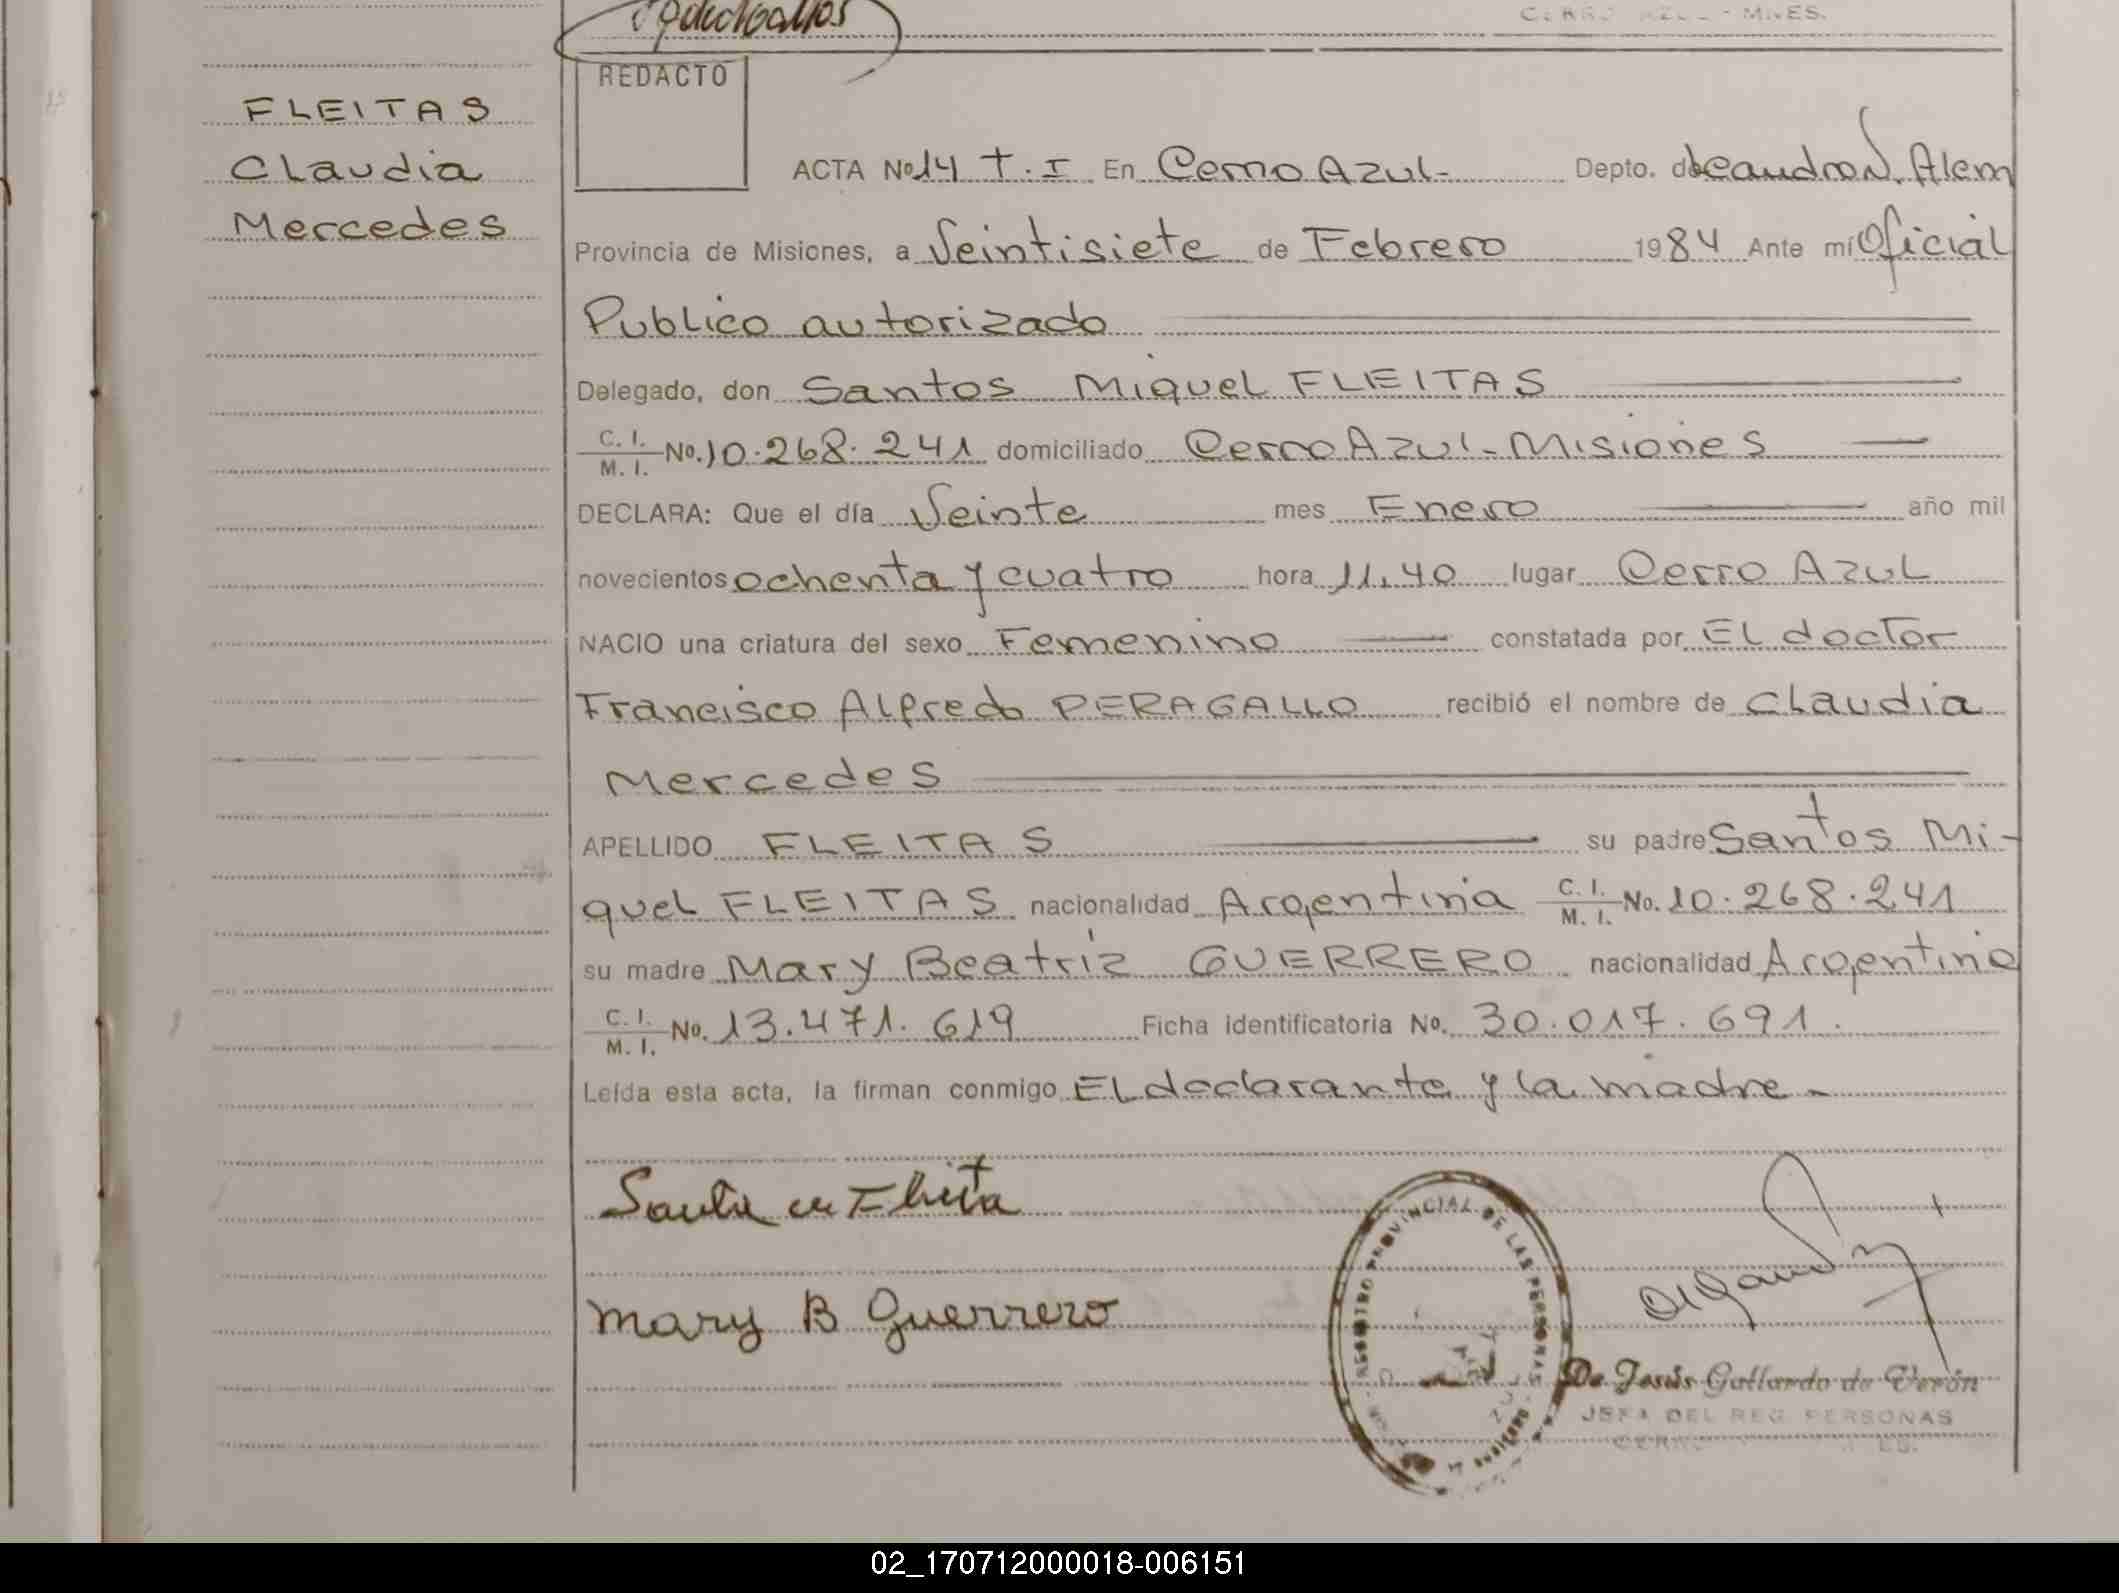 CERRO AZUL - MNES.
REDACTO
FLEITAS
Claudia
Mercedes
ACTA No 14 T. I En Cerro Azul- Depto. de Leandro N. Alem
Provincia de Misiones, a Veintisiete de Febrero 1984 Ante mí Oficial
Publico autorizado
Delegado, don Santos Miguel FLEITAS
C. I. / M. I. No. 10.268.241 domiciliado Cerro Azul - Misiones
DECLARA: Que el día Veinte mes Enero año mil
novecientos ochenta y cuatro hora 11,40 lugar Cerro Azul
NACIO una criatura del sexo Femenino constatada por El doctor
Francisco Alfredo PERAGALLO recibió el nombre de Claudia
Mercedes
APELLIDO FLEITAS su padre Santos Mi-
guel FLEITAS nacionalidad Argentina C. I. / M. I. No. 10.268.241
su madre Mary Beatriz GUERRERO nacionalidad Argentina
C. I. / M. I. No. 13.471.619 Ficha identificatoria No. 30.017.691.
Leída esta acta, la firman conmigo El declarante y la madre -
Mary B Guerrero
REGISTRO PROVINCIAL DE LAS PERSONAS
De Jesús Gallardo de Verón
JEFA DEL REG. PERSONAS
02_170712000018-006151